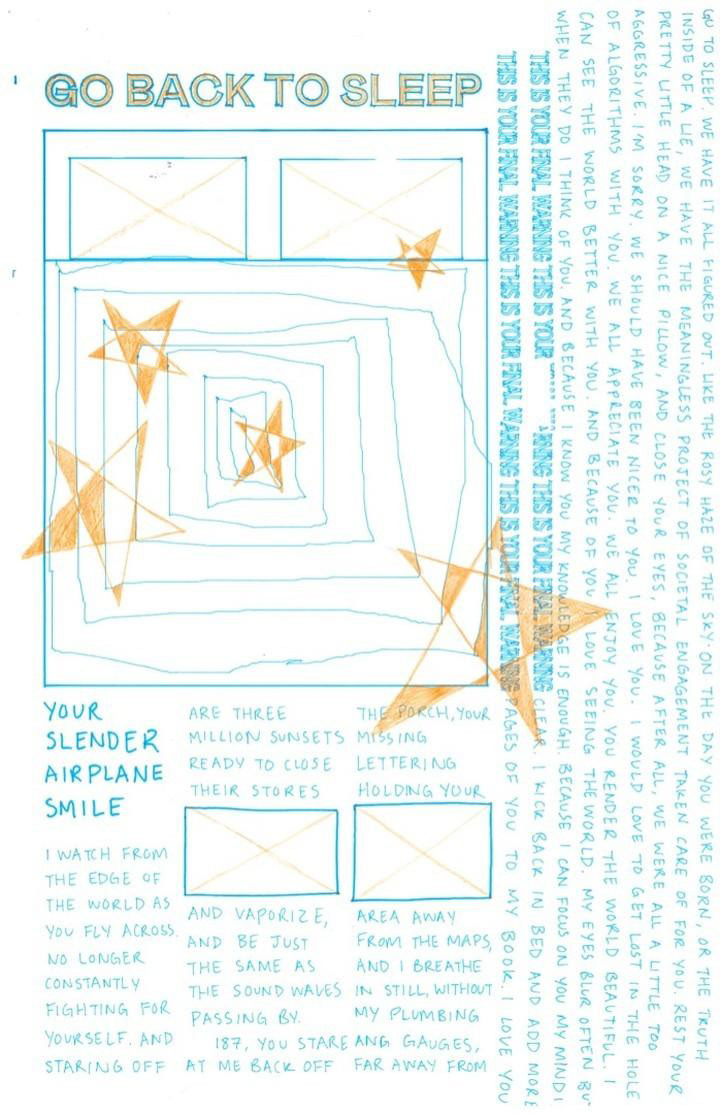 GO BACK TO SLEEP
YOUR
SLENDER
AIRPLANE
SMILE
I WATCH FROM
THE EDGE OF
THE WORLD AS
YOU FLY ACROSS.
NO LONGER
CONSTANTLY
FIGHTING FOR
YOURSELF. AND
STARING OFF
ARE THREE
MILLION SUNSETS
READY TO CLOSE
THEIR STORES
AND VAPORIZE,
AND BE JUST
THE SAME AS
THE SOUND WAVES
PASSING BY.
187, YOU STARE
AT ME BACK OFF
THE PORCH, YOUR
MISSING
LETTERING
HOLDING YOUR
AREA AWAY
FROM THE MAPS,
AND I BREATHE
IN STILL, WITHOUT
MY PLUMBING
AND GAUGES,
FAR AWAY FROM
GO TO SLEEP. WE HAVE IT ALL FIGURED OUT. LIKE THE ROSY HAZE OF THE SKY ON THE DAY YOU WERE BORN, OR THE TRUTH
INSIDE OF A LIE, WE HAVE THE MEANINGLESS PROJECT OF SOCIETAL ENGAGEMENT TAKEN CARE OF FOR YOU. REST YOUR
PRETTY LITTLE HEAD ON A NICE PILLOW, AND CLOSE YOUR EYES, BECAUSE AFTER ALL, WE WERE ALL A LITTLE TOO
AGGRESSIVE. I'M SORRY. WE SHOULD HAVE BEEN NICER TO YOU. I LOVE YOU. I WOULD LOVE TO GET LOST IN THE HOLE
OF ALGORITHMS WITH YOU. WE ALL APPRECIATE YOU. WE ALL ENJOY YOU. YOU RENDER THE WORLD BEAUTIFUL. I
CAN SEE THE WORLD BETTER WITH YOU. AND BECAUSE OF YOU I LOVE SEEING THE WORLD. MY EYES BLUR OFTEN BU
WHEN THEY DO I THINK OF YOU. AND BECAUSE I KNOW YOU MY KNOWLEDGE IS ENOUGH. BECAUSE I CAN FOCUS ON YOU MY MIND I
THIS IS YOUR FINAL WARNING THIS IS YOUR THIS IS YOUR FINAL WARNING CLEAR. I KICK BACK IN BED AND ADD MORE
THIS IS YOUR FINAL WARNING THIS IS YOUR FINAL WARNING THIS IS YOUR FINAL WARNING PAGES OF YOU TO MY BOOK. I LOVE YOU